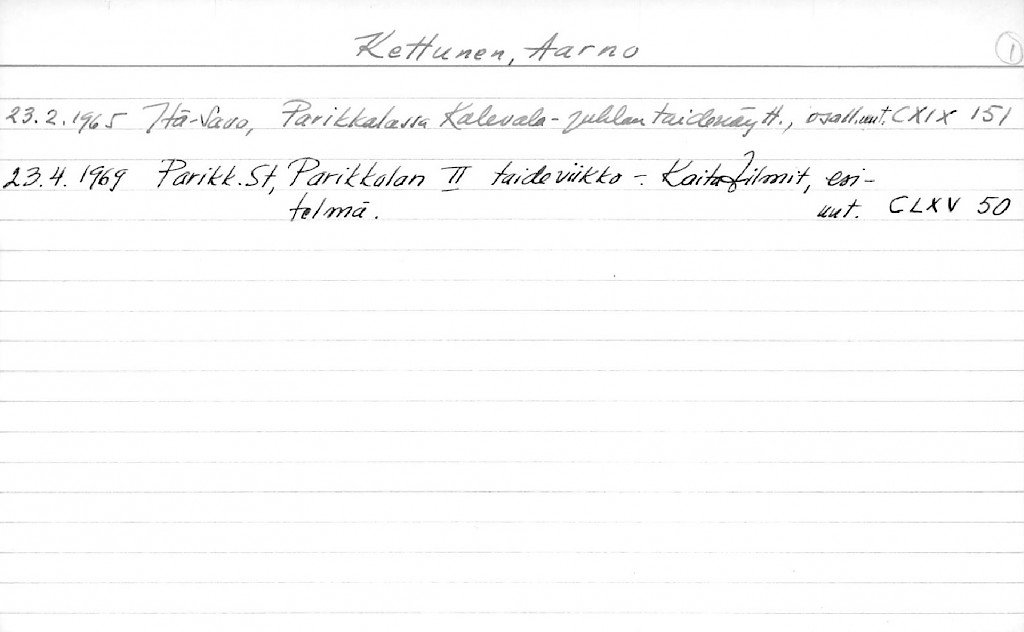 Kettunen, Aarno
1
23.2.1965 Itä-Savo, Parikkalassa Kalevala-juhlan taidenäytt., osall. uut. CXIX 151
23.4. 1969 Parikk. St, Parikkalan II taideviikko - Kaitafilmit, esi-
telmä. uut. CLXV 50